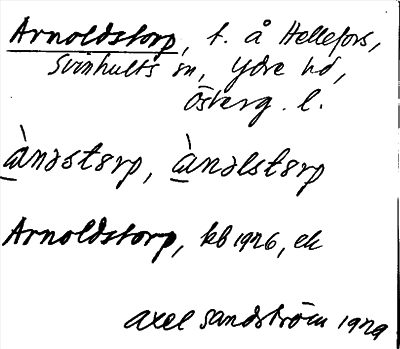 Arnoldstorp, t. å Hellefors,
Svinhults sn, Ydre hd,
Österg. l.
à̱nəstɵrp, à̱nəlstɵrp
Arnoldstorp, kb 1926, ek
Axel Sandström 1929